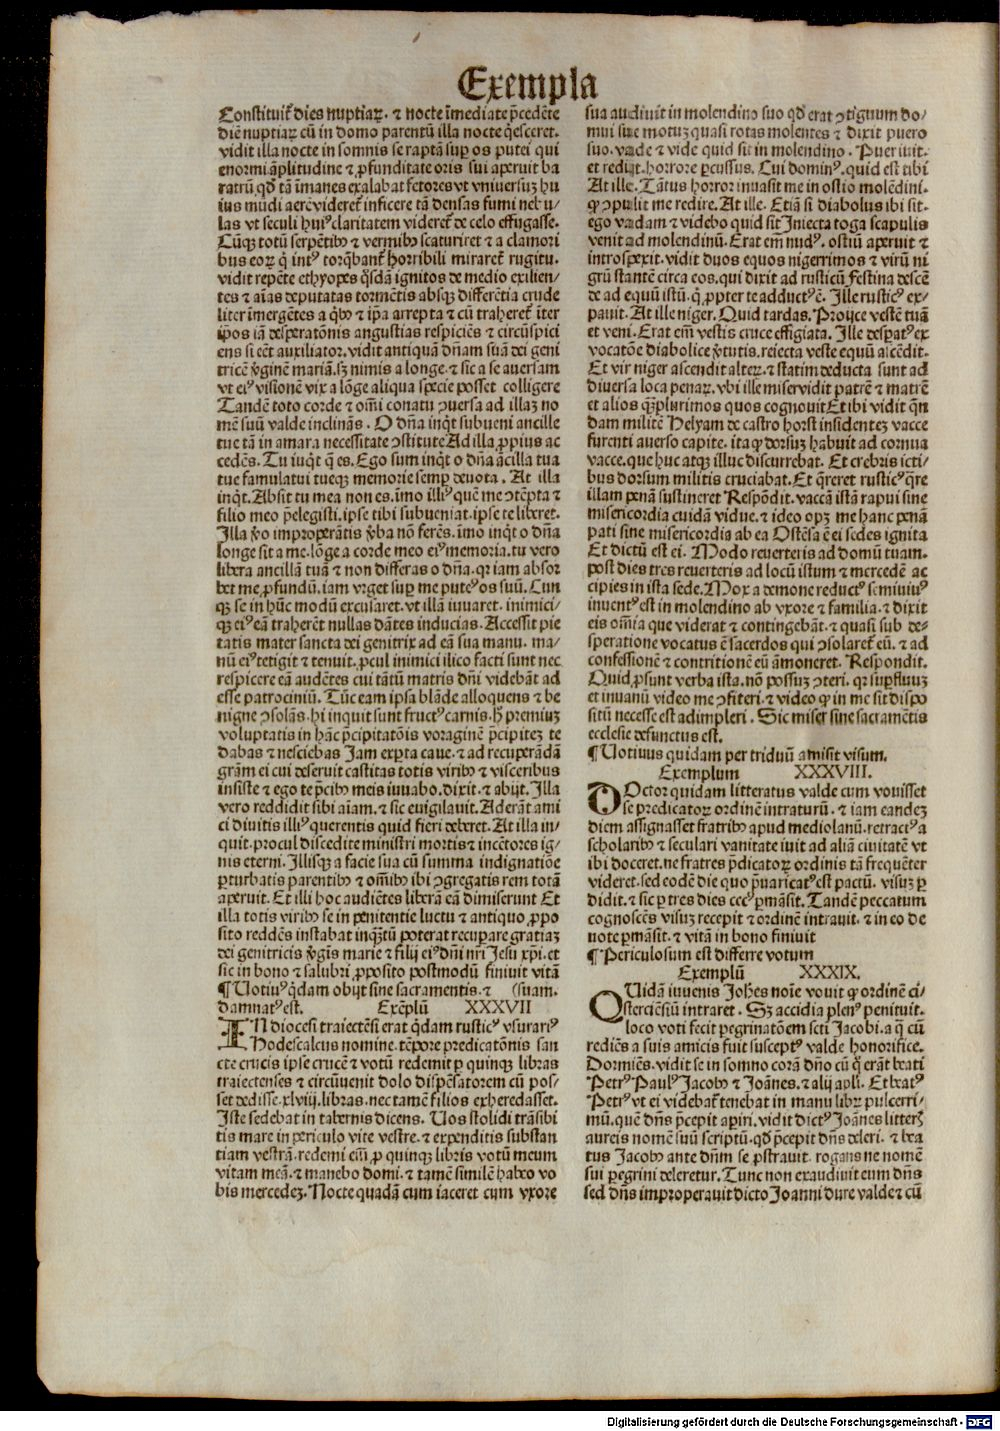 Exempla
Constituit̄ dies nuptiaꝝ. ⁊ nocte īmediate p̄cedēte
diē nuptiaꝝ cū in domo parentū illa nocte q̇esceret.
vidit illa nocte in somnis se raptā suꝑ os putei qui
enormi āplitudine ⁊ ꝓfunditate oris sui aperuit ba
ratrū qd̓ tā īmanes exalabat fetores vt vniuersuꝫ hu
ius mūdi aerē videret̄ inficere tā densas fumi nebu/
las vt seculi huiꝰ claritatem videret̄ de celo effugasse.
Cūqꝫ totū serpētibꝰ ⁊ vermibꝰ scaturiret ⁊ a clamori
bus eoꝝ q̇ intꝰ torq̄bant̄ horribili miraret̄ rugitu.
vidit repēte ethyopes q̇sdā ignitos de medio exilien/
tes ⁊ aīas deputatas tormētis absqꝫ differētia crude
liter īmergētes a q̇bꝰ ⁊ ip̄a arrepta ⁊ cū traheret̄ īter
ip̄os iā desperatōnis angustias respiciēs ⁊ circūspici
ens si eēt auxiliator. vidit antiquā dn̄am suā dei geni
tricē v̓ginē mariā. sꝫ nimis a longe. ⁊ sic a se auersam
vt eiꝰ visionē vix a lōge aliqua specie posset colligere
Tandē toto corde ⁊ om̄i conatu ꝯuersa ad illaꝫ no
mē suū valde inclinās. O dn̄a inq̇t subueni ancille
tue tā in amara necessitate ꝯstitute Ad illa ꝓpius ac
cedēs. Tu inq̇t q̄ es. Ego sum inq̇t o dn̄a ācilla tua
tue famulatui tueqꝫ memorie semꝑ deuota. At illa
inq̇t. Absit tu mea non es. īmo illiꝰ quē me ꝯtēpta ⁊
filio meo p̄elegisti. ipse tibi subueniat. ipse te liberet.
Illa v̓o improperātis v̓ba nō ferēs. īmo inq̇t o dn̄a
longe sit a me. lōge a corde meo eiꝰ memoria. tu vero
libera ancillā tuā ⁊ non differas o dn̄a. qꝛ iam absor
bet me ꝓfundū. iam vrget suꝑ me puteꝰ os suū. Cun
qꝫ se in hūc modū excusaret. vt illā iuuaret. inimici/
qꝫ eiꝰ eā traherēt nullas dātes inducias. Accessit pie
tatis mater sancta dei genitrix ad eā sua manu. ma/
nū eiꝰ tetigit ⁊ tenuit. ꝓcul inimici ilico facti sunt nec
respicere eā audētes cui tātū matris dn̄i videbāt ad
esse patrociniū. Tūc eam ipsa blāde alloquens ⁊ be
nigne ꝯsolās. hi inquit sunt fructꝰ carnis. hꝫ premiuꝫ
voluptatis in hāc p̄cipitatōis voraginē p̄cipiteꝫ te
dabas ⁊ nesciebas Jam exꝑta caue. ⁊ ad recuperādā
gr̄am ei cui deseruit castitas totis viribꝰ ⁊ visceribus
insiste ⁊ ego te p̄cibꝰ meis iuuabo. dixit. ⁊ abijt. Illa
vero reddidit sibi aīam. ⁊ sic euigilauit. Aderāt ami
ci diuitis illiꝰ querentis quid fieri deberet. At illa in/
quit. procul discedite ministri mortis ⁊ incētores ig/
nis eterni. Illisqꝫ a facie sua cū summa indignatiōe
ꝑturbatis parentibꝰ ⁊ om̄ibꝰ ibi ꝯgregatis rem totā
aperuit. Et illi hoc audiētes liberā eā dimiserunt Et
illa totis viribꝰ se in penitentie luctu ⁊ antiquo ꝓpo
sito reddēs instabat inq̄ꝫtū poterat recuꝑare gratiaꝫ
dei genitricis v̓gīs marie ⁊ filij eiꝰ dn̄i nr̄i Jesu xp̄i. et
sic in bono ⁊ salubri ꝓposito postmodū finiuit vitā
¶ Uotiuꝰ q̇dam obijt sine sacramentis. ⁊ (suam.
damnatꝰ est. Exēplū XXXVII
IN diocesi traiectēsi erat q̇dam rusticꝰ vsurariꝰ
Hodescalcus nomine. tēpore predicatōnis san
cte crucis ipse crucē ⁊ votū redemit ꝑ quinqꝫ libras
traiectenses ⁊ circūuenit dolo dispēsatorem cū pos/
set dedisse. xlviij. libras. nec tamē filios exheredasset.
Iste sedebat in tabernis dicens. Uos stolidi trāsibi
tis mare in periculo vite vestre. ⁊ expenditis substan
tiam vestrā. redemi em̄ ꝓ quinqꝫ libris votū meum
vitam meā. ⁊ manebo domi. ⁊ tamē similē habeo vo
bis mercedeꝫ. Nocte quadā cum iaceret cum vxore
sua audiuit in molendino suo qd̓ erat ꝯtignum do/
mui sue motuꝫ quasi rotas molentes ⁊ dixit puero
suo. vade ⁊ vide quid sit in molendino. Puer iuit.
et redijt. horrore ꝑcussus. Cui dominꝰ. quid est tibi
At ille. Tātus horror inuasit me in ostio molēdini.
ꝙ ꝯpulit me redire. At ille. Etiā si diabolus ibi sit.
ego vadam ⁊ videbo quid sit Iniecta toga scapulis
venit ad molendinū. Erat em̄ nudꝰ. ostiū aperuit ⁊
introspexit. vidit duos equos nigerrimos ⁊ virū ni
grū stantē circa eos. qui dixit ad rusticū Festina descē
de ad equū istū. q̇ ꝓpter te adductꝰ ē. Ille rusticꝰ ex/
pauit. At ille niger. Quid tardas. Proijce vestē tuā
et veni. Erat em̄ vestis cruce effigiata. Ille despatꝰ ex
vocatōe diabolice v̓tutis. reiecta veste equū ascēdit.
Et vir niger ascendit alteꝝ. ⁊ statim deducta sunt ad
diuersa loca penaꝝ. vbi ille miser vidit patrē ⁊ matrē
et alios q̄ꝫplurimos quos cognouit Et ibi vidit q̄n
dam militē Helyam de castro horst insidenteꝫ vacce
furenti auerso capite. ita ꝙ dorsuꝫ habuit ad cornua
vacce. que huc atqꝫ illuc discurrebat. Et crebris icti/
bus dorsum militis cruciabat. Et q̄reret rusticꝰ q̄re
illam penā sustineret Respōdit. vaccā istā rapui sine
misericordia cuidā vidue. ⁊ ideo opꝫ me hanc penā
pati sine misericordia ab ea Ostēsa ē ei sedes ignita
Et dictū est ei. Modo reuerteris ad domū tuam.
post dies tres reuerteris ad locū istum ⁊ mercedē ac
cipies in ista sede. Mox a demone reductꝰ semiuiuꝰ
inuentꝰ est in molendino ab vxore ⁊ familia. ⁊ dixit
eis om̄ia que viderat ⁊ contingebāt. ⁊ quasi sub de/
speratione vocatus ē sacerdos qui ꝯsolaret̄ eū. ⁊ ad
confessionē ⁊ contritionē eū āmoneret. Respondit.
Quid ꝓsunt verba ista. nō possuꝫ ꝯteri. qꝛ suꝑfluuꝫ
et inuanū video me ꝯfiteri. ⁊ video ꝙ in me sit dispo
sitū necesse est adimpleri. Sic miser sine sacramētis
ecclesie defunctus est.
¶ Uotiuus quidam per triduū amisit visum.
Exemplum XXXVIII.
DOctor quidam litteratus valde cum vouisset
se predicatoꝝ ordinē intraturū. ⁊ iam eandeꝫ
diem assignasset fratribꝰ apud mediolanū. retractꝰ a
scholaribꝰ ⁊ seculari vanitate iuit ad aliā ciuitatē vt
ibi doceret. ne fratres p̄dicatoꝝ ordinis tā frequēter
videret. sed eodē die quo p̄uaricatꝰ est pactū. visuꝫ ꝑ
didit. ⁊ sic ꝑ tres dies cecꝰ ꝑmāsit. Tandē peccatum
cognoscēs visuꝫ recepit ⁊ ordinē intrauit. ⁊ in eo de
uote ꝑmāsit. ⁊ vitā in bono finiuit
¶ Periculosum est differre votum
Exemplū XXXIX.
QUidā iuuenis Joh̄es noīe vouit ꝙ ordinē ci/
sterciēsiū intraret. Sꝫ accidia plenꝰ penituit.
loco voti fecit pegrinatōem scti Jacobi. a q̄ cū
rediēs a suis amicis fuit susceptꝰ valde honorifice.
Dormiēs. vidit se in somno corā dn̄o cū q̄ erāt beati
Petrꝰ Paulꝰ Jacobꝰ ⁊ Joānes. ⁊ alij apl̄i. Et beatꝰ
Petrꝰ vt ei videbat̄ tenebat in manu libꝝ pulcerri/
mū. quē dn̄s p̄cepit aꝑiri. vidit dictꝰ Joānes litter̄
aureis nomē suū scriptū. qd̓ p̄cepit dn̄s deleri. ⁊ bea
tus Jacobꝰ ante dn̄m se ꝓstrauit. rogans ne nomē
sui ꝑegrini deleretur. Tunc non exaudiuit eum dn̄s
sed dn̄s improperauit dicto Joanni dure valde ⁊ cū
Digitalisierung gefördert durch die Deutsche Forschungsgemeinschaft - DFG